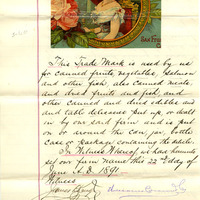 SAN FRAN
This Trade Mark is used by us
for canned fruits, vegetables, salmon
and other fish, also canned meats,
and dried fruits and fish, and
other canned and dried edibles and
and table delicacies put up, or sold
by our said firm and is put
on or around the can, jar, bottle
case or package containing the article.
In Witness Whereof we have hereunto
set our firm name this 22nd day of
June A.D. 1891.
Witness
James L. King